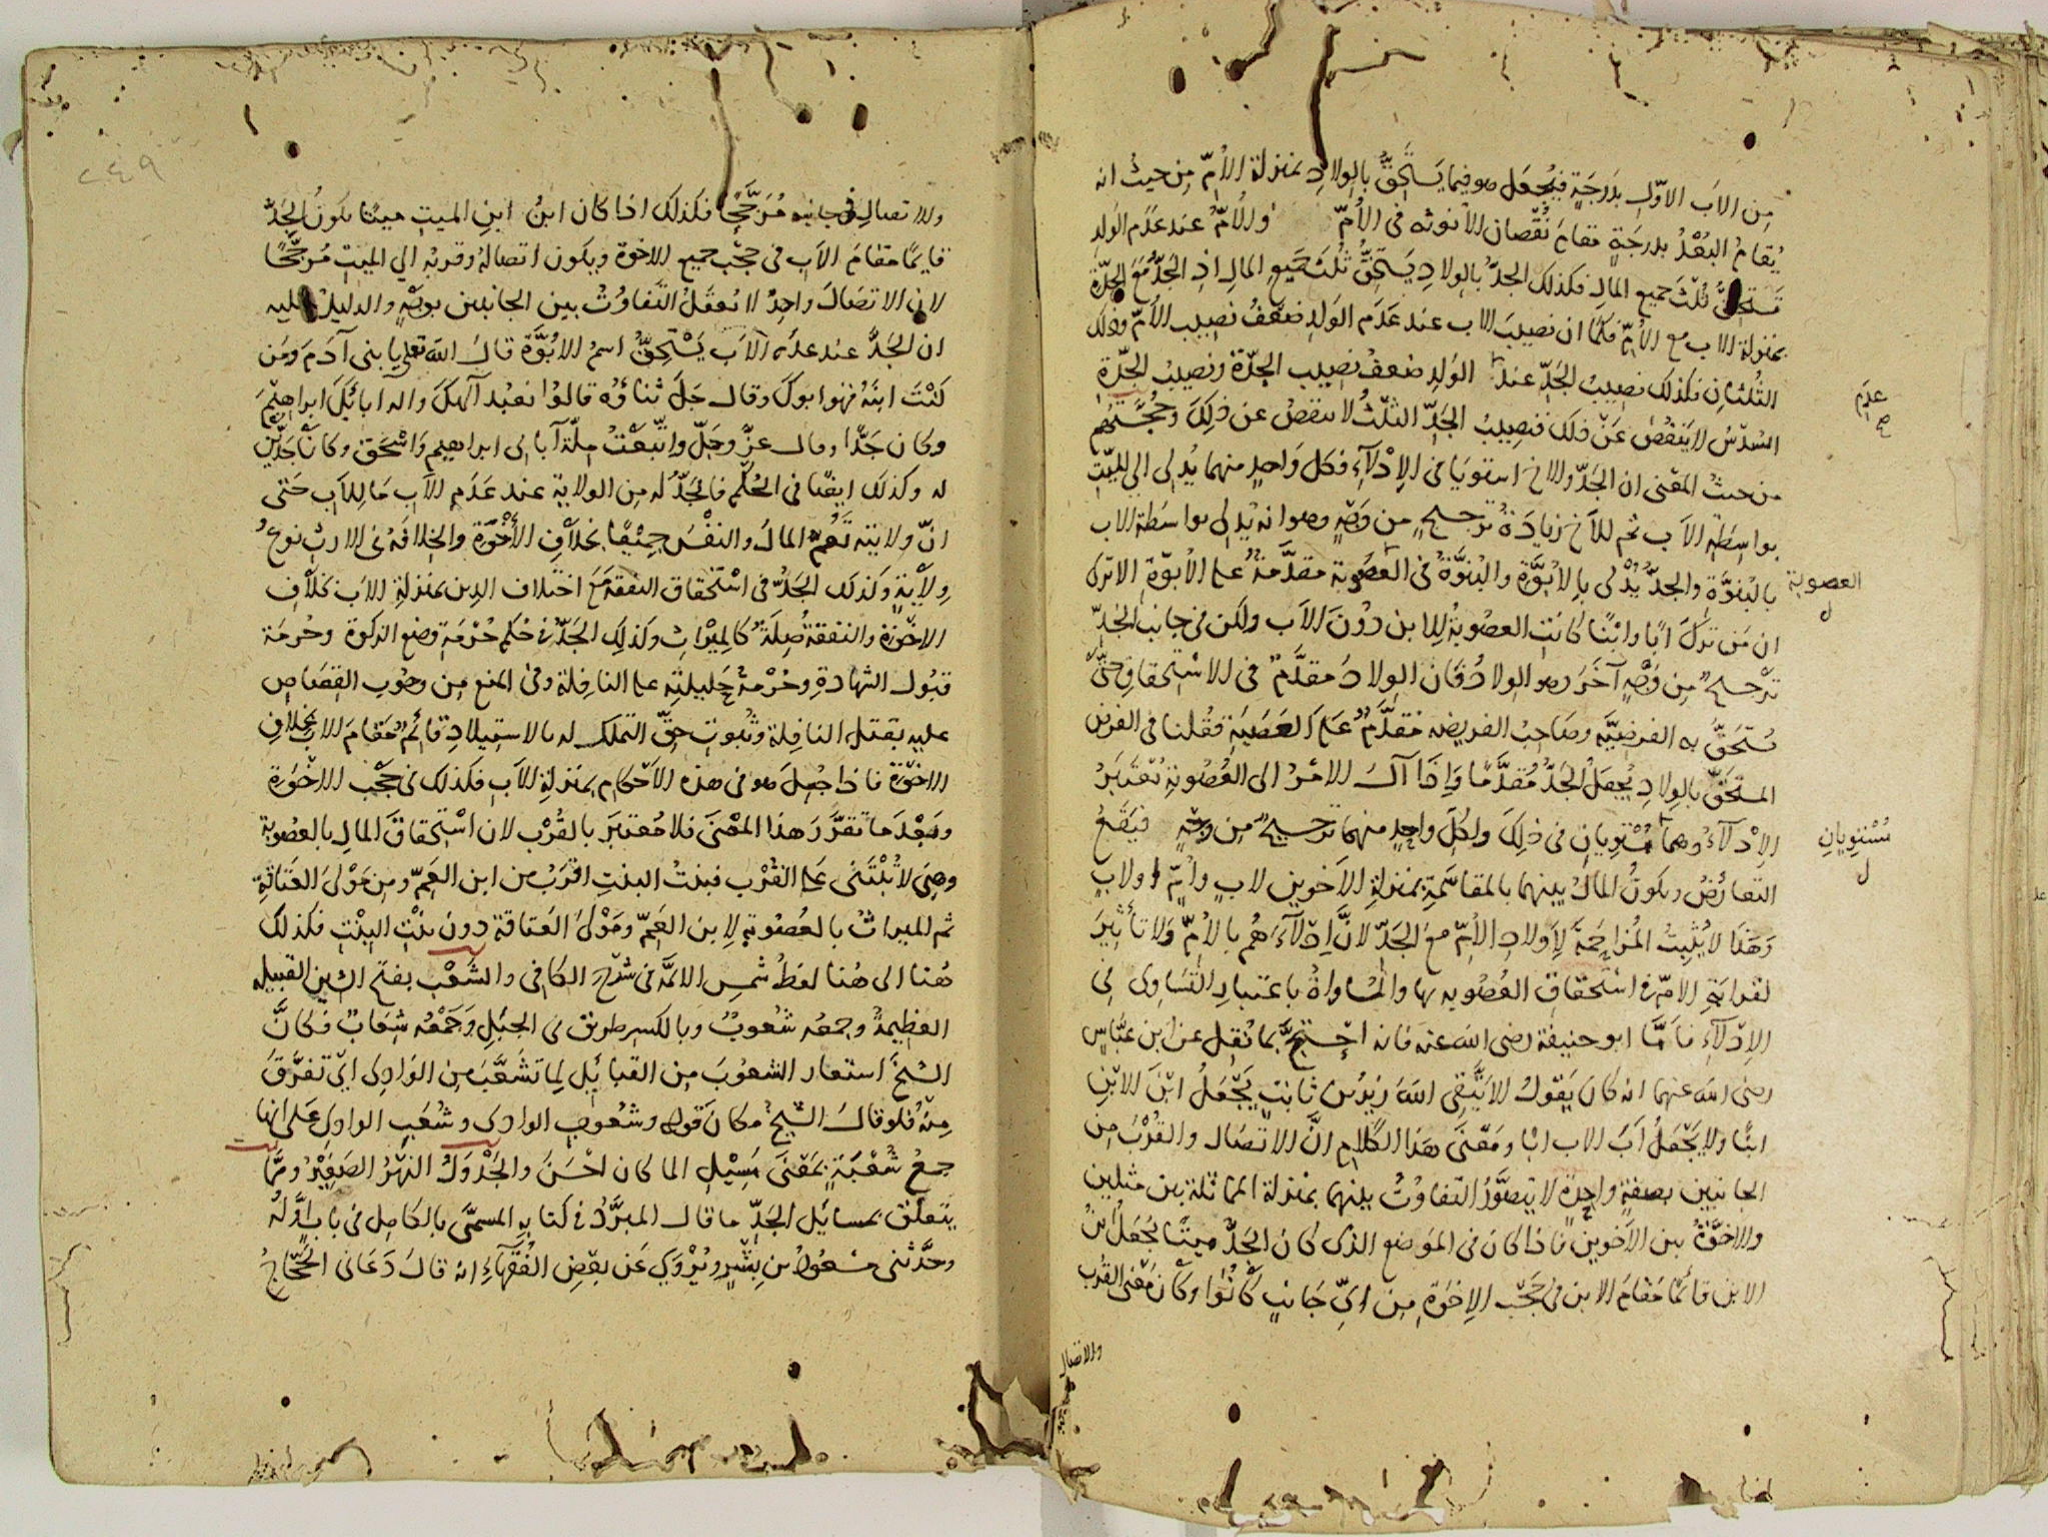 من الاب الاول بدرجة فيجعل هو فيما يستحق بالولاد بمنزلة الام من حيث انه
يقام البعد بدرجة مقام نقصان الانوثه في الام والام عند عدم الولد
تستحق ثلث جميع المال فكذلك الجد بالولاد يستحق ثلث جميع المال اذ الجد مع الجدة
بمنزلة الاب مع الام فكما ان نصيب الاب عند عدم الولد ضعف نصيب الام وذلك
الثلثان فكذلك نصيب الجد عند الولد ضعف نصيب الجدة ونصيب الجدة
عدم
صح
السدس لا ينقص عن ذلك فنصيب الجد الثلث لا ينقص عن ذلك وحجتهم
من حيث المعنى ان الجد والاخ استويا في الادلاء فكل واحد منهما يدلي الى الميت
بواسطة الاب ثم للاخ زيادة ترجيح من وجه وهو انه يدلي بواسطة الاب
بالبنوة والجد يدلى بالابوة والبنوة في العصوبة مقدمة على الابوة الا ترى
العصوبة
ل
ان من ترك ابا وابنا كانت العصوبة للابن دون الاب ولكن في جانب الجد
ترجيح من وجه آخر وهو الولاد فان الولاد مقدم في الاستحقاق حتى
تستحق به الفرضية وصاحب الفريضه مقدم على العصبة فقلنا في الفرض
المستحق بالولاد يجعل الجد مقدما واذا آل الامر الى العصوبة تعتبر
الادلاء وهما مستويان في ذلك ولكل واحد منهما ترجيح من وجه فيقع
مستويان
ل
التعارض ويكون المال بينهما بالمقاسمة بمنزلة الاخوين لاب وام او لاب
وهذا لا يثبت المزاحمة لاولاد الام مع الجد لان ادلاءهم بالام ولا تأثير
لقرابة الام في استحقاق العصوبه بها والمساواة باعتبار التساوى في
الادلاء فاما ابو حنيفة رضى الله عنه فانه احتج بما نقل عن ابن عباس
رضى الله عنهما انه كان يقول الا يتقى الله زيد بن ثابت يجعل ابن الابن
ابنا ولا يجعل اب الاب ابا ومعنى هذا الكلام ان الاتصال والقرب من
الجانبين بصفة واحدة لا يتصور التفاوت بينهما بمنزلة المماثلة بين مثلين
والاخوة بين الاخوين فاذا كان في الموضع الذى كان الجد ميتا يجعل ابن
الابن قائما مقام الابن في حجب الاخوة من اي جانب كانوا وكان معنى القرب
والاتصال
ولاتصال في جانبه مرجحا فكذلك اذا كان ابن ابن الميت ميتا يكون الجد
قايما مقام الاب في حجب جميع الاخوة ويكون اتصاله وقربه الي الميت مرجحا
لان الاتصال واحد لا يعقل التفاوت بين الجانبين بوجه والدليل عليه
ان الجد عند عدم الاب يستحق اسم الابوة قال الله تعلى يا بني آدم ومن
كنت ابنه فهو ابوك وقال جل ثناؤه قالوا نعبد آلهك واله آبائك ابراهيم
وكان جدا وقال عز وجل واتبعت ملة آبائى ابراهيم واسحق وكانا جدين
له وكذلك ايضا في الحكم فالجد له من الولاية عند عدم الاب ما للاب حتى
ان ولايته تعم المال والنفس جميعا بخلاف الاخوة والخلافة في الارث نوع
ولاية وكذلك الجد في استحقاق النفقة مع اختلاف الدين بمنزلة الاب بخلاف
الاخوة والنفقة صلة كالميراث وكذلك الجد في حكم حرمة وضع الزكوة وحرمة
قبول الشهادة وحرمة حليلته على النافلة وفي المنع من وجوب القصاص
عليه بقتل النافلة وثبوت حق التملك له بالاستيلاد قائم مقام الاب بخلاف
الاخوة فاذا جعل هو في هذه الاحكام بمنزلة الاب فكذلك في حجب الاخوة
وبعد ما تقرر هذا المعنى فلا معتبر بالقرب لان استحقاق المال بالعصوبة
وهي لا تبتنى على القرب فبنت البنت اقرب من ابن العم ومن مولى العتاقة
ثم الميراث بالعصوبة لابن العم ومولى العتاقة دون بنت البنت فكذلك
هنا الى هنا لفظ شمس الائمه في شرح الكافى والشعب بفتح الشين القبيله
العظيمة وجمعه شعوب وبالكسر طريق في الجبل وجمعه شعاب فكان
الشيخ استعار الشعوب من القبائل لما تشعب من الوادى اي تفرق
منه فلو قال الشيخ مكان قوله وشعوب الوادى وشعب الوادى على انها
جمع شعبة بمعنى مسيل الما كان احسن والجدول النهر الصغير ومما
يتعلق بمسائل الجد ما قال المبرد في كتابه المسمى بالكامل في باب اوله
وحدثنى مسعود بن بشر ويروى عن بعض الفقهاء انه قال دعانى الحجاج